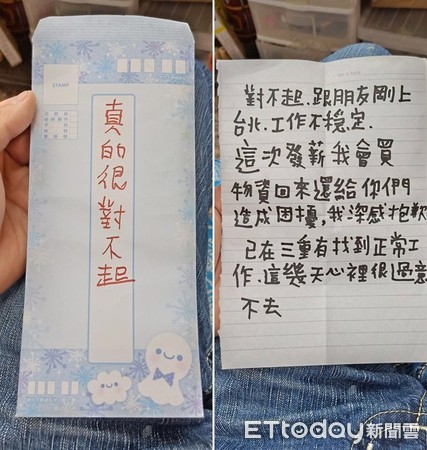 STAMP
真的很對不起
對不起.跟朋友剛上
台北.工作不穩定.
這次發薪我會買
物資回來還給你們
造成困擾,我深感抱歉
已在三重有找到正常工
作.這幾天心裡很過意
不去
ETtoday新聞雲